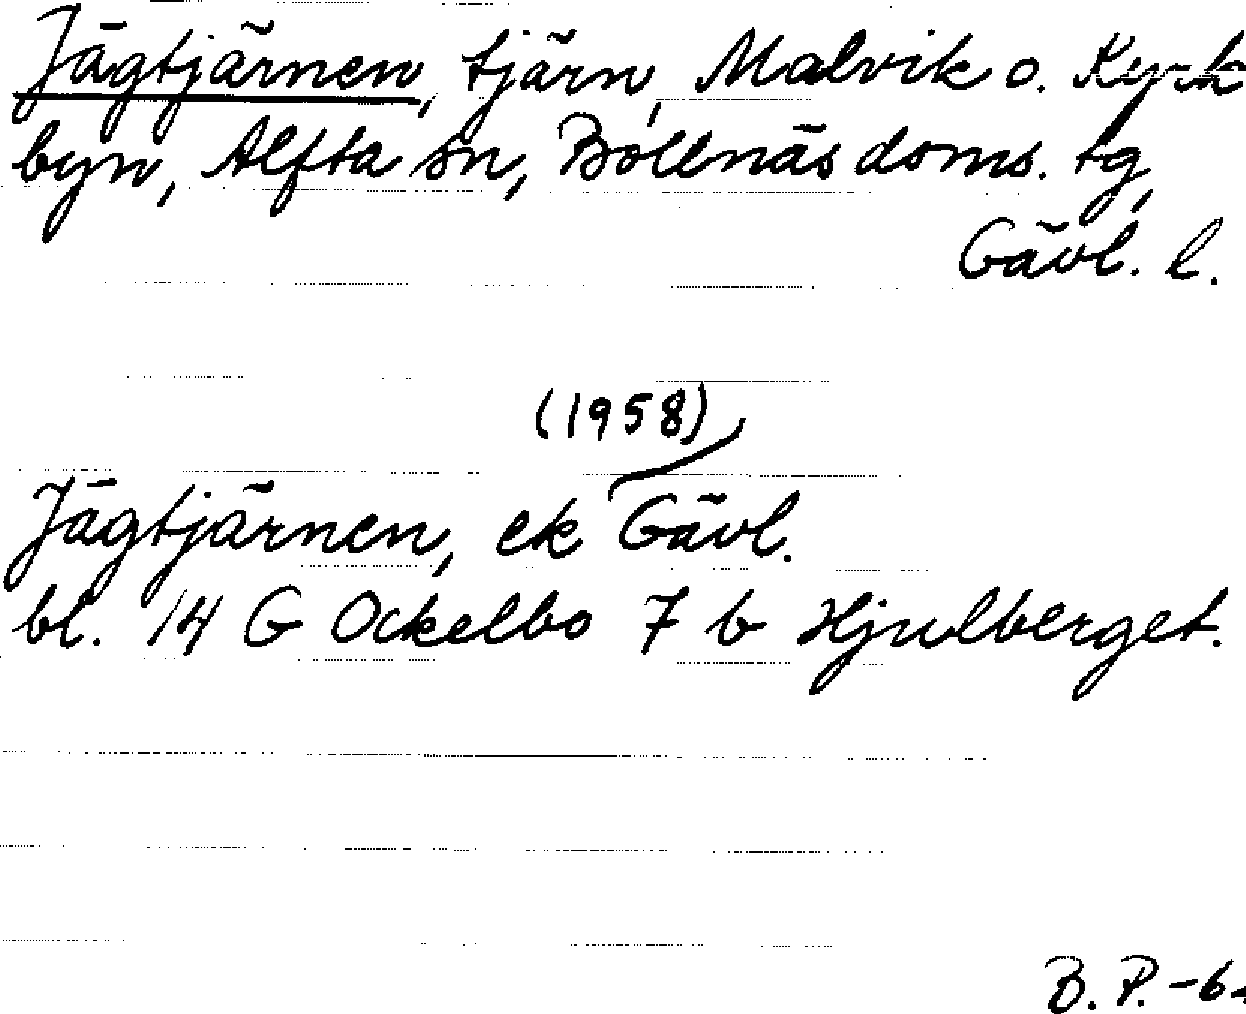 Jägtjärnen, tjärn, Malvik o. Kyrk
byn, Alfta sn, Bollnäs doms. tg,
Gävl. l.
(1958)
Jägtjärnen, ek Gävl.
bl. 14 G Ockelbo 7 b Hjulberget.
B. P. -6